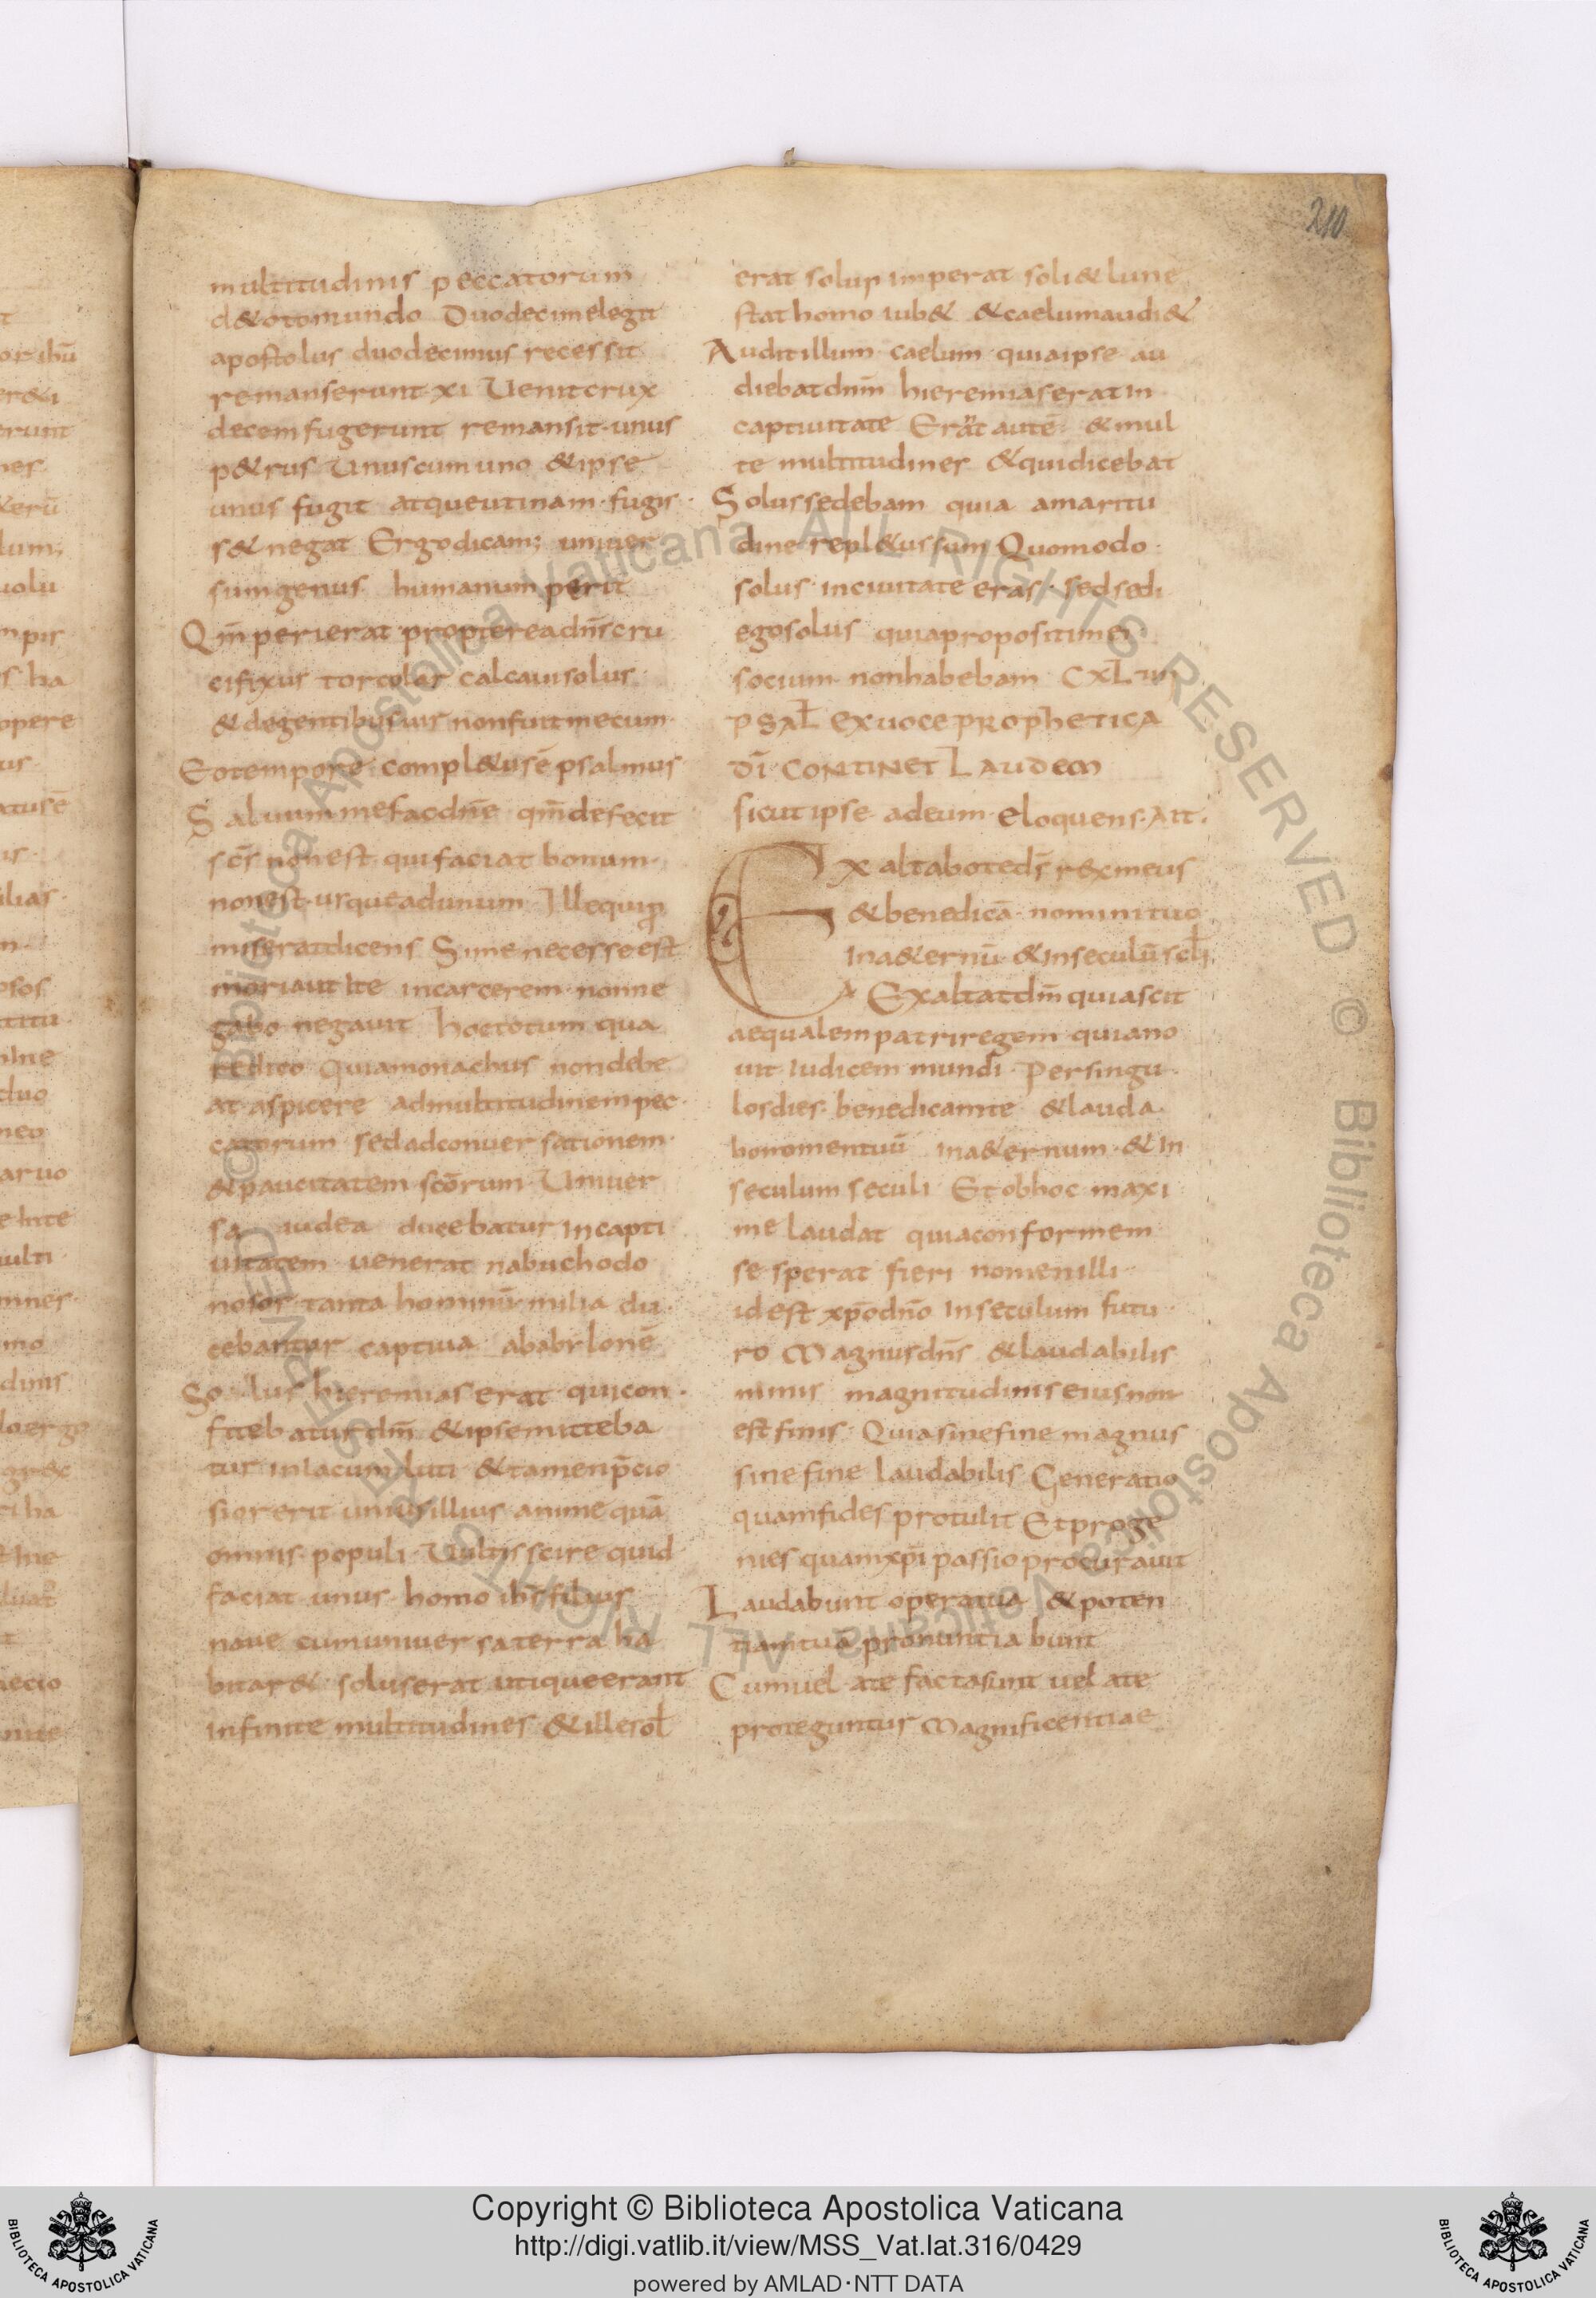 210
multitudinis peccatorum
d&otomundo Duodecim elegit
apostolus duodecimus recessit
remanserunt xi Uenit crux
decem fugerunt remansit unus
p&rus Unus cum uno & ipse
unus fugit atque utinam fugis
s& negat Ergo dicam; uniuer
sum genus humanum perit
Qm̄ perierat propterea dn̄s cru
cifixus torcolar calcaui solus
& de gentibus uir non fuit mecum
Eo tempore compl&us ē psalmus
Saluum me fac dn̄e qm̄ defecit
sc̄s non est qui faciat bonum
non est usque ad unum Ille qui
miserat dicens Si me necesse est
mori aut ite in carcerem non ne
gabo negauit hoc totum qua
re dico Quia monachus non debe
at aspicere ad multitudinem pec
catorum sed ad conuersationem
& paucitatem scōrum Uniuer
sa iudea ducebatur in capti
uitatem uenerat nabuchodo
nosor tanta hominū milia du
cebantur captiua a babylonē
Solus hieremias erat qui con
fitebatur dn̄m & ipse mitteba
tur in lacum luti & tamen p̄cio
sior erit unius illius anime quā
omnis populi Uultis scire quid
faciat unus homo ih̄s filius
naue cum uniuersa terra ha
bitar& solus erat utique erant
infinite multitudines & ille sol̄
erat solus imperat soli & lune
stat homo iub& & caelum audi&
Audit illum caelum quia ipse au
diebat dn̄m hieremias erat in
captiuitate Erant autē & mul
te multitudines & quid dicebat
Solus sedebam quia amaritu
dine repl&us sum Quomodo
solus in ciuitate eras sed sedi
ego solus quia propositi mei
socium non habebam CXLIIII
PSAL̄ EX UOCE PROPHETICA
DĪ CONTINET LAUDEM
sicut ipse ad eum eloquens Ait
Exaltabo te ds̄ rex meus
& benedicā nomini tuo
in a&ernū & in seculū scl̄i
A Exaltat dn̄m quia scit
aequalem patri regem quia no
uit iudicem mundi Per singu
los dies benedicam te & lauda
bo nomen tuū in a&ernum & in
seculum seculi Et ob hoc maxi
me laudat quia conformem
se sperat fieri nomen illi
id est xp̄o dn̄o in seculum futu
ro Magnus dn̄s & laudabilis
nimis magnitudinis eius non
est finis Quia sine fine magnus
sine fine laudabilis Generatio
quam fides protulit Et proge
nies quam xp̄i passio procurauit
Laudabunt opera tua & poten
tiam tuā pronuntiabunt
Cum uel a te facta sunt uel a te
proteguntur Magnificentiae
Copyright © Biblioteca Apostolica Vaticana
http://digi.vatlib.it/view/MSS_Vat.lat.316/0429
powered by AMLAD·NTT DATA
BIBLIOTECA APOSTOLICA VATICANA
BIBLIOTECA APOSTOLICA VATICANA
© Biblioteca Apostolica Vaticana ALL RIGHTS RESERVED © Biblioteca Apostolica Vaticana ALL RIGHTS RESERVED